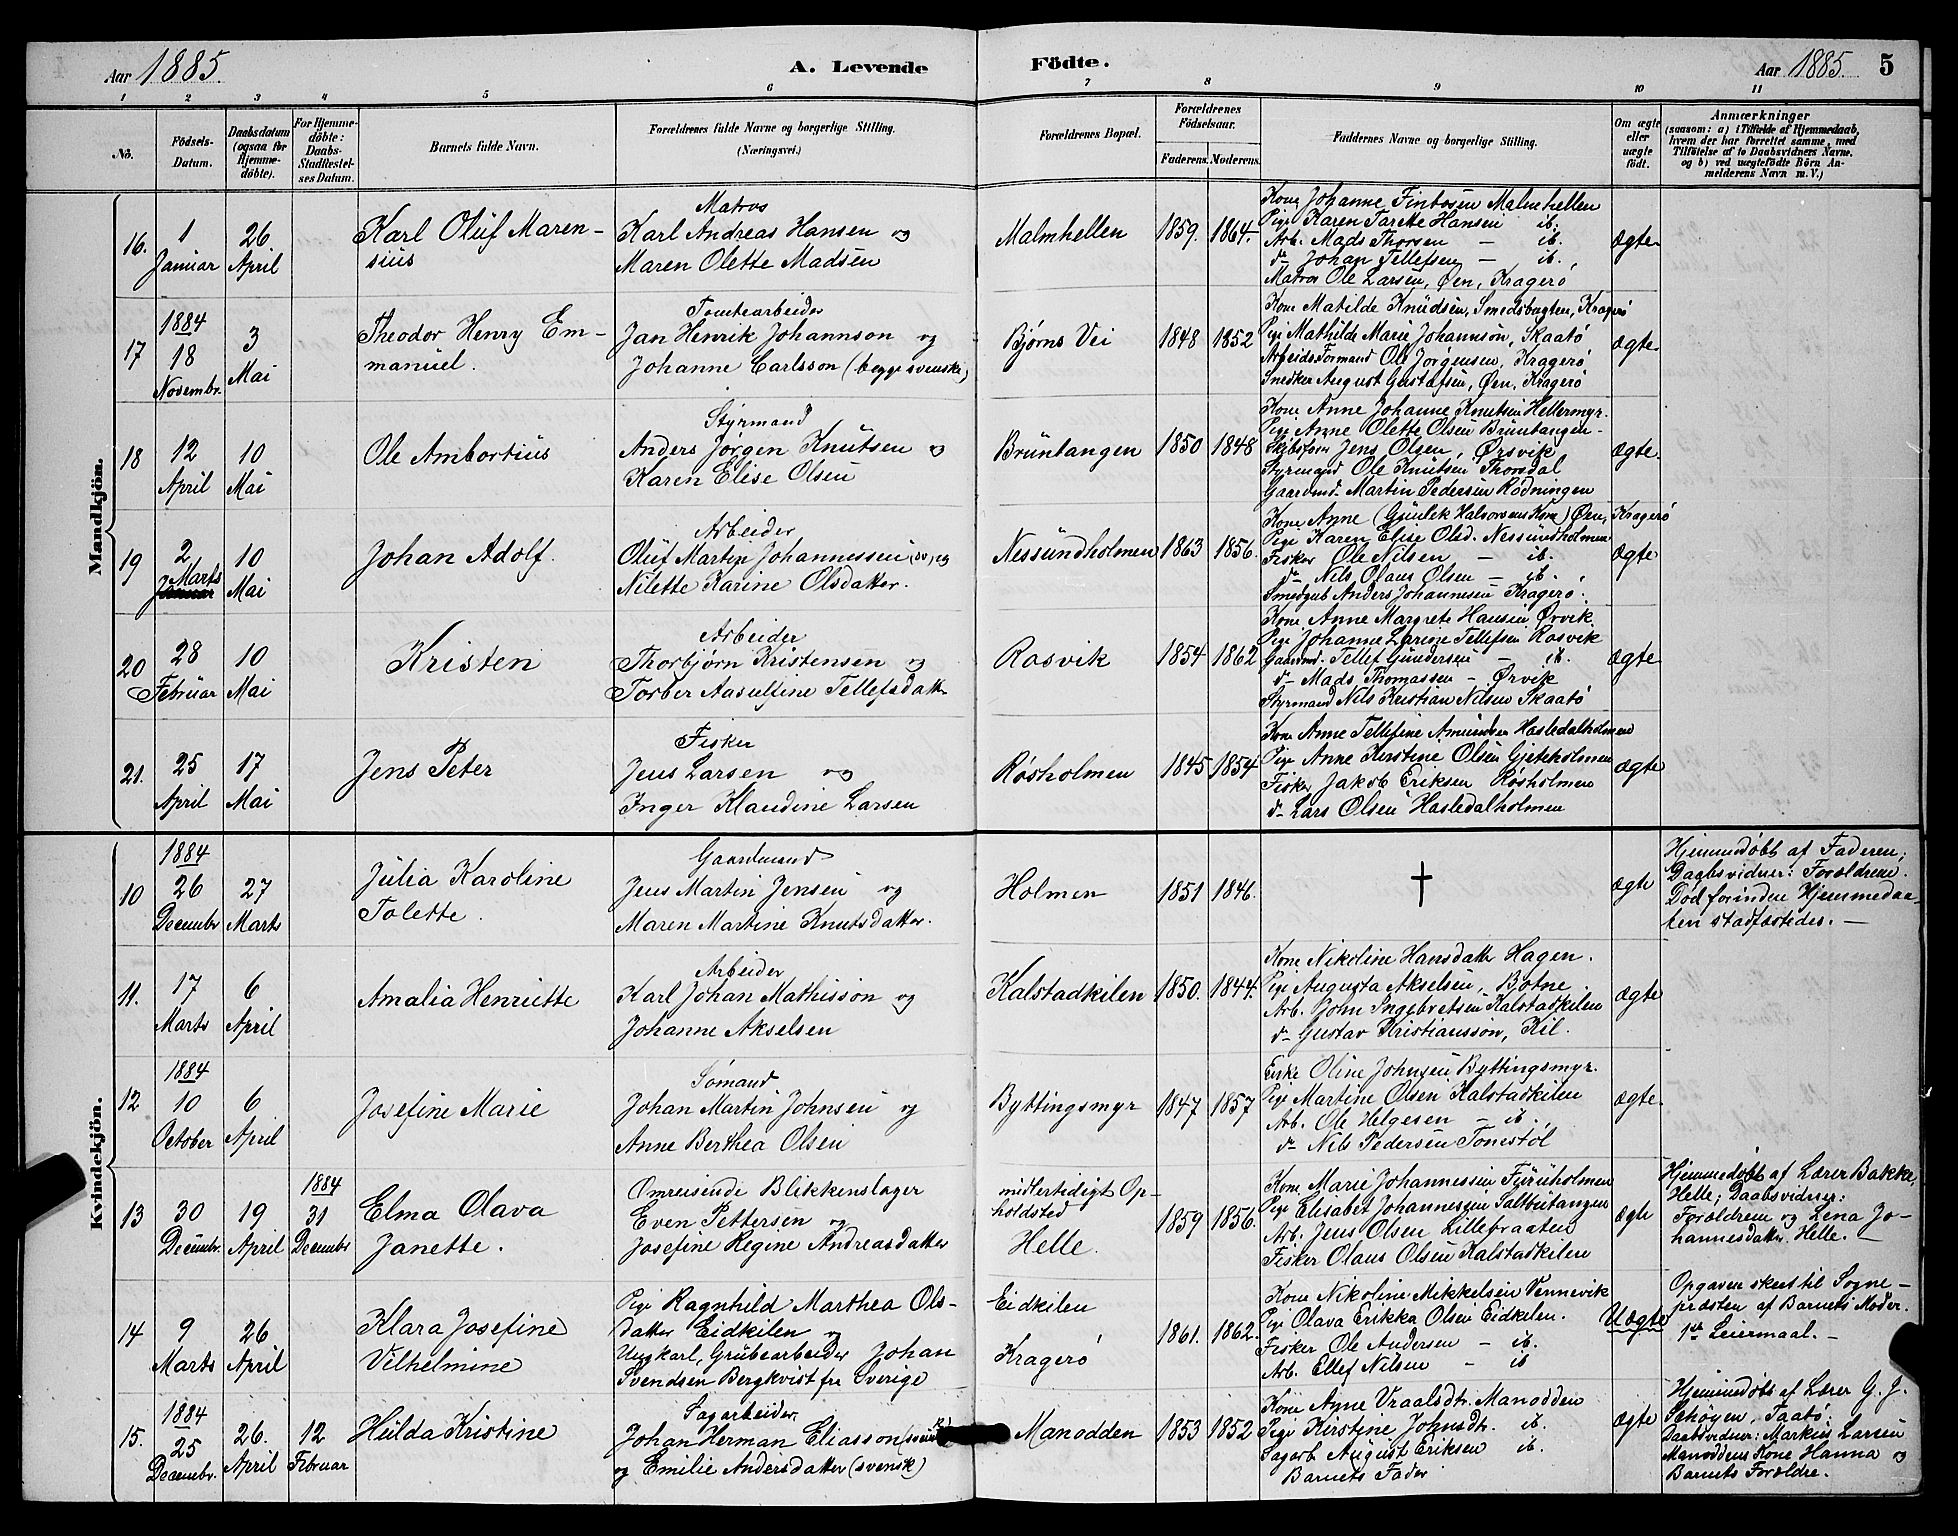 Aar 1885. A. Levende Födte. Aar 1885. 5
1 2 3 4 5 6 7 8 9 10 11
No.
Födsels-Datum.
Daabsdatum (ogsaa for Hjemmedöbte).
For Hjemmedöbte: Daabs-Stadfæstelses Datum.
Barnets fulde Navn.
Forældrenes fulde Navne og borgerlige Stilling.
(Næringsvei.)
Forældrenes Bopæl.
Forældrenes Födselsaar.
Faderens. Moderens.
Faddernes Navne og borgerlige Stilling.
Om ægte eller uægte födt.
Anmærkninger
(saasom: a) i Tilfælde af Hjemmedaab, hvem der har forrettet samme, med Tilföielse af to Daabsvidners Navne, og b) ved uægtefödte Börn Anmelderens Navn m. V.)
Mandkjön.
16. 1 Januar
26 April
Karl Oluf Marensius
Matros
Karl Andreas Hansen og
Maren Olette Madsen
Malmhellen
1859. 1864.
Kone Johanne Finbosen Malmhellen
Pige Karen Tarette Hansen ib.
Arb. Mads Thorsen — ib.
do Johan Tellefsen — ib.
Matros Ole Larsen, Øen, Kragerö
Ægte
17 1884 18 Novembr.
3 Mai
Theodor Henry Emmanuel.
Tomtearbeider
Jan Henrik Johannson og
Johanne Carlsson (begge svenske)
Bjørns Vei
1848 1852
Kone Matilde Knudsen, Smedsbugten, Kragerö
Pige Mathilde Marie Johannson, Skaatö
Arbeids Formand Ole Jörgensen, Kragerö
Snedker August Gustafsen, Øen, Kragerö
Ægte
18 12 April
10 Mai
Ole Ambortius
Styrmand
Anders Jørgen Knutsen og
Karen Elise Olsen
Bruntangen
1850 1848
Kone Anne Johanne Knutsen Hellermyr.
Pige Anne Olette Olsen Bruntangen
Skibsförer Jens Olsen, Ørsvik
Styrmand Ole Knutsen Thorsdal
Gaardmd. Martin Pedersen Rödningen
Ægte.
19 2 Marts
10 Mai
Johan Adolf.
Arbeider
Oluf Martin Johannessen (sv.) og
Nilette Karine Olsdatter.
Nessundholmen
1863 1856.
Kone Anne (Gunlek Halvorsens Kone) Øen, Kragerö
Pige Karen Elise Olsd. Nessundholmen
Fisker Ole Nilsen — ib.
do Nils Olaus Olsen — ib.
Smedsub Anders Johannesen Kragerö.
Ægte
20 28 Februar
10 Mai
Kristen
Arbeider
Thorbjörn Kristensen og
Torber Aasultine Tellefsdatter
Rosvik
1854 1862
Kone Anne Margrete Hansen Ørvik
Pige Johanne Larine Tellefsen Rosvik
Gaardmd. Tellef Gundersen — ib.
do Mads Thomassen — Ørvik
Styrmand Nils Kristian Nilsen Skaatö
Ægte
21. 25 April
17 Mai
Jens Peter
Fisker
Jens Larsen og
Inger Klaudine Larsen
Røsholmen
1845 1854
Kone Anne Tellefine Amundsen Hasledalholmen
Pige Anne Kirstine Olsen Gjeteholmen
Fisker Jakob Eriksen Røsholmen
do Lars Olsen Hasledalholmen
Ægte
Kvindekjön.
10 1884 26 Decembr
27 Marts
Julia Karoline Tolette.
Gaardmand
Jens Martin Jensen og
Maren Martine Knutsdatter.
Holmen
1851 1846.
†
Ægte
Hjemmedøbt af Faderen;
Daabsvidner: Forældrene.
Død forinden Hjemmedaaben stadfæstedes. —
11. 17 Marts
6 April
Amalia Henriette
Arbeider
Karl Johan Mathisson og
Johanne Akselsen
Kalstadkilen
1850. 1844.
Kone Nikoline Hansdatter Hagen.
Pige Augusta Akselsen, Botne
Arb. John Ingebretsen Kalstadkilen
do Gustav Kristiansson, Kil.
Ægte
12 1884 10 October
6 April
Josefine Marie
Sömand
Johan Martin Johnsen og
Anne Berthea Olsen
Byttingsmyr
1847 1857
Enke Oline Johnsen Byttingsmyr.
Pige Martine Olsen Kalstadkilen
Arb. Ole Helgesen — ib.
do Nils Pedersen Tonestöl
Ægte.
13 30 Decembr.
19 April
1884 31 Decembr
Elma Olava Janette.
Omreisende Blikkenslager
Even Pettersen og
Josefine Regine Andreasdatter
midlertidigt Opholdsted
Helle.
1859 1856.
Kone Marie Johannesen Furuholmen
Pige Elisabet Johannesen Saltbutangen
Arb. Jens Olsen Lillebraaten
Fisker Olaus Olsen Kalstadkilen
Ægte
Hjemmedøbt af Lærer Bakke,
Helle; Daabsvidner:
Forældrene og Lena Johannesdatter Helle. —
14 9 Marts
26 April
Klara Josefine Vilhelmine
Pige Ragnhild Marthea Olsdatter Eidkilen og
Ungkarl, Grubearbeider Johan
Svendsen Bergkvist fra Sverige
Eidkilen
Kragerö
1861. 1862.
Kone Nikoline Mikkelsen Vennevik
Pige Olava Erikka Olsen Eidkilen.
Fisker Ole Andersen — ib.
Arb. Ellef Nilsen — ib
Uægte
Opgaven skeet til Sognepræsten af Barnets Moder.
1ste Leiermaal. —
15. 1884 25 Decembr.
26. April
12 Februar
Hulda Kristine
Sagarbeider
Johan Herman Eliasson (svensk)
og Emilie Andersdatter (svensk)
Manodden
1853 1852
Kone Anne Vraalsdtr. Manodden
Pige Kirstine Johnsdtr. ib.
Sagarb. August Eriksen ib.
Barnets Fader
Ægte
Hjemmedøbt af Lærer G. J.
Stköyen, Taatö;
Daabsvidner: Markus Larsen
Manoddens Kone Hanna og
Barnets Forældre.